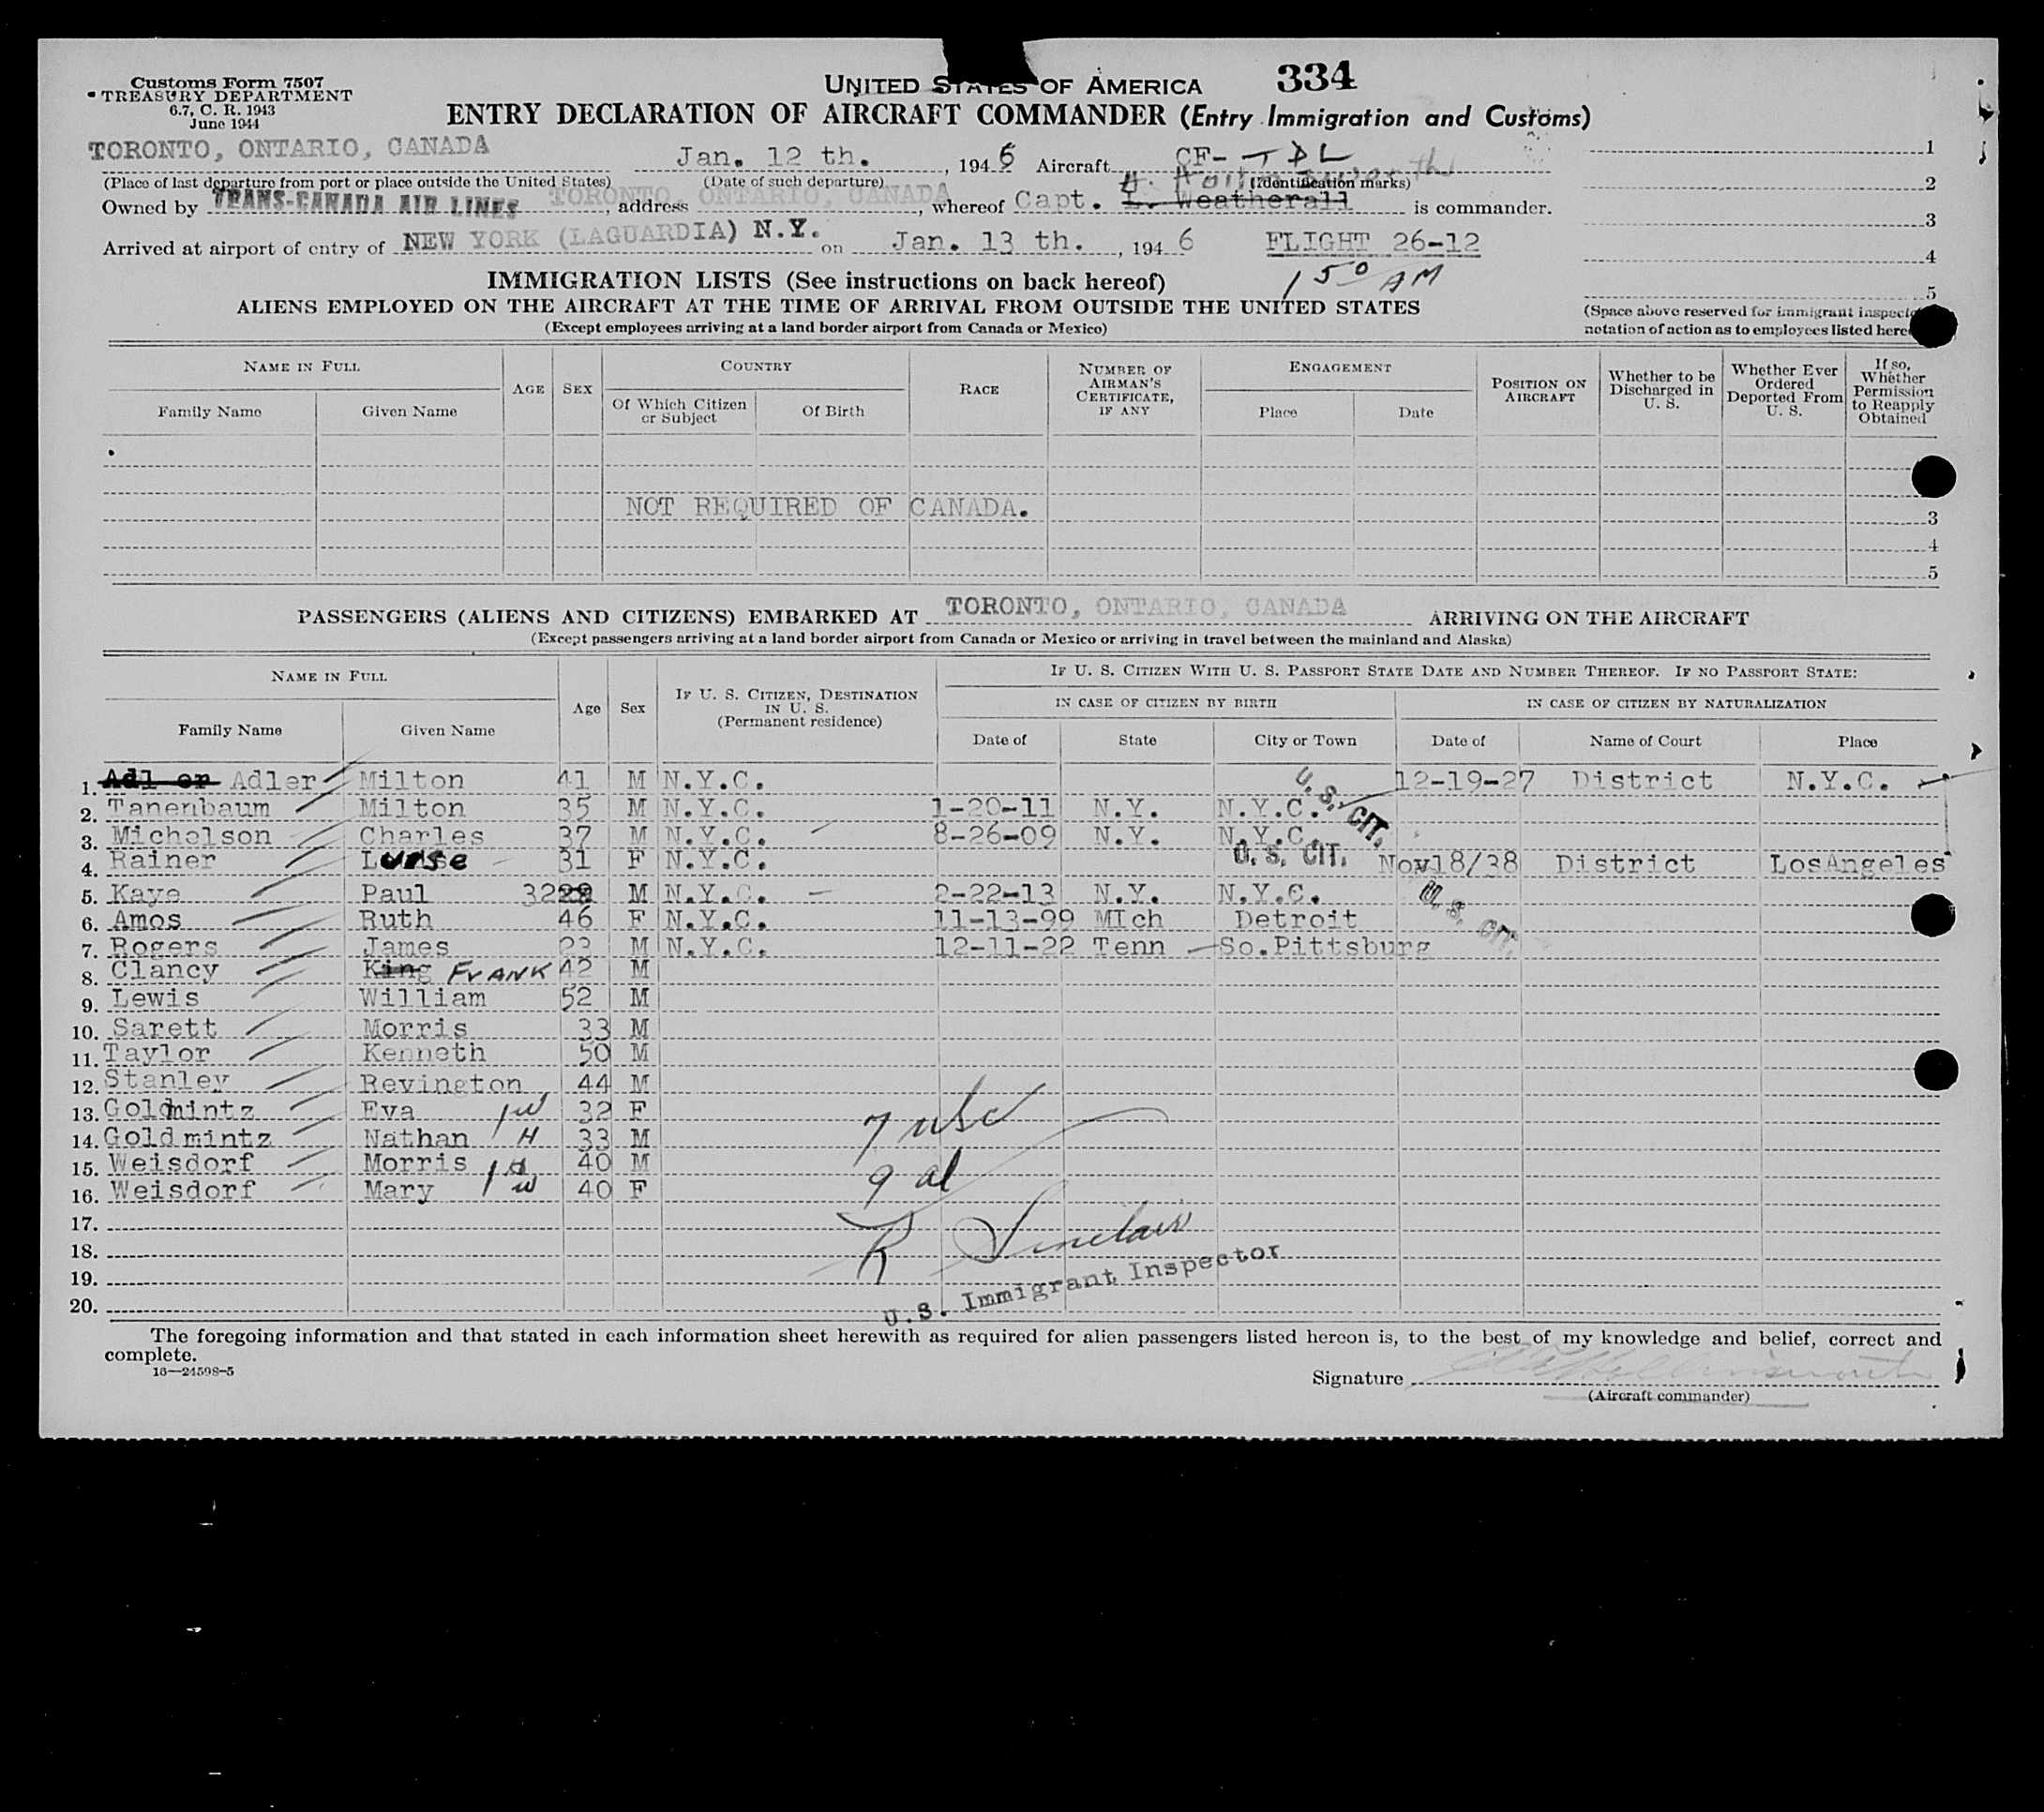 Customs Form 7507
TREASURY DEPARTMENT
6.7, C. R. 1943
June 1944
UNITED STATES OF AMERICA 334
ENTRY DECLARATION OF AIRCRAFT COMMANDER (Entry Immigration and Customs)
TORONTO, ONTARIO, CANADA Jan. 12 th. , 1946 Aircraft CF- TDL
(Place of last departure from port or place outside the United States) (Date of such departure) (Identification marks)
Owned by TRANS-CANADA AIR LINES , address TORONTO, ONTARIO, CANADA , whereof Capt. L. Weatherall is commander.
Arrived at airport of entry of NEW YORK (LAGUARDIA) N.Y. on Jan. 13 th. , 1946 FLIGHT 26-12
1 50 AM
1
2
3
4
5
(Space above reserved for immigrant
notation of action as to employees listed
IMMIGRATION LISTS (See instructions on back hereof)
ALIENS EMPLOYED ON THE AIRCRAFT AT THE TIME OF ARRIVAL FROM OUTSIDE THE UNITED STATES
(Except employees arriving at a land border airport from Canada or Mexico)
NAME IN FULL
Family Name Given Name
AGE SEX
COUNTRY
Of Which Citizen or Subject Of Birth
RACE
NUMBER OF AIRMAN'S CERTIFICATE, IF ANY
ENGAGEMENT
Place Date
POSITION ON AIRCRAFT
Whether to be Discharged in U. S.
Whether Ever Ordered Deported From U. S.
If so, Whether Permission to Reapply Obtained
NOT REQUIRED OF CANADA.
3
4
5
PASSENGERS (ALIENS AND CITIZENS) EMBARKED AT TORONTO, ONTARIO, CANADA ARRIVING ON THE AIRCRAFT
(Except passengers arriving at a land border airport from Canada or Mexico or arriving in travel between the mainland and Alaska)
NAME IN FULL
Family Name Given Name
Age Sex
IF U. S. CITIZEN, DESTINATION IN U. S.
(Permanent residence)
IF U. S. CITIZEN WITH U. S. PASSPORT STATE DATE AND NUMBER THEREOF. IF NO PASSPORT STATE:
IN CASE OF CITIZEN BY BIRTH IN CASE OF CITIZEN BY NATURALIZATION
Date of State City or Town Date of Name of Court Place
1. Adl er Adler Milton 41 M N.Y.C. 12-19-27 District N.Y.C.
2. Tanenbaum Milton 35 M N.Y.C. 1-20-11 N.Y. N.Y.C. U. S. CIT.
3. Michelson Charles 37 M N.Y.C. 8-26-09 N.Y. N.Y.C.
4. Rainer Lourse 31 F N.Y.C. U. S. CIT. Nov18/38 District LosAngeles
5. Kaye Paul 32 M N.Y.C. 2-22-13 N.Y. N.Y.C.
6. Amos Ruth 46 F N.Y.C. 11-13-99 MIch Detroit U. S. CIT.
7. Rogers James 23 M N.Y.C. 12-11-22 Tenn So.Pittsburg
8. Clancy King FRANK 42 M
9. Lewis William 52 M
10. Sarett Morris 33 M
11. Taylor Kenneth 50 M
12. Stanley Revington 44 M
13. Goldmintz Eva 1 W 32 F
14. Goldmintz Nathan H 33 M
15. Weisdorf Morris 1 H 40 M
16. Weisdorf Mary W 40 F
17.
18.
19.
20.
7 usc
9 al
R Sinclair
U.S. Immigrant Inspector
The foregoing information and that stated in each information sheet herewith as required for alien passengers listed hereon is, to the best of my knowledge and belief, correct and
complete.
16—24598-5
Signature
(Aircraft commander)